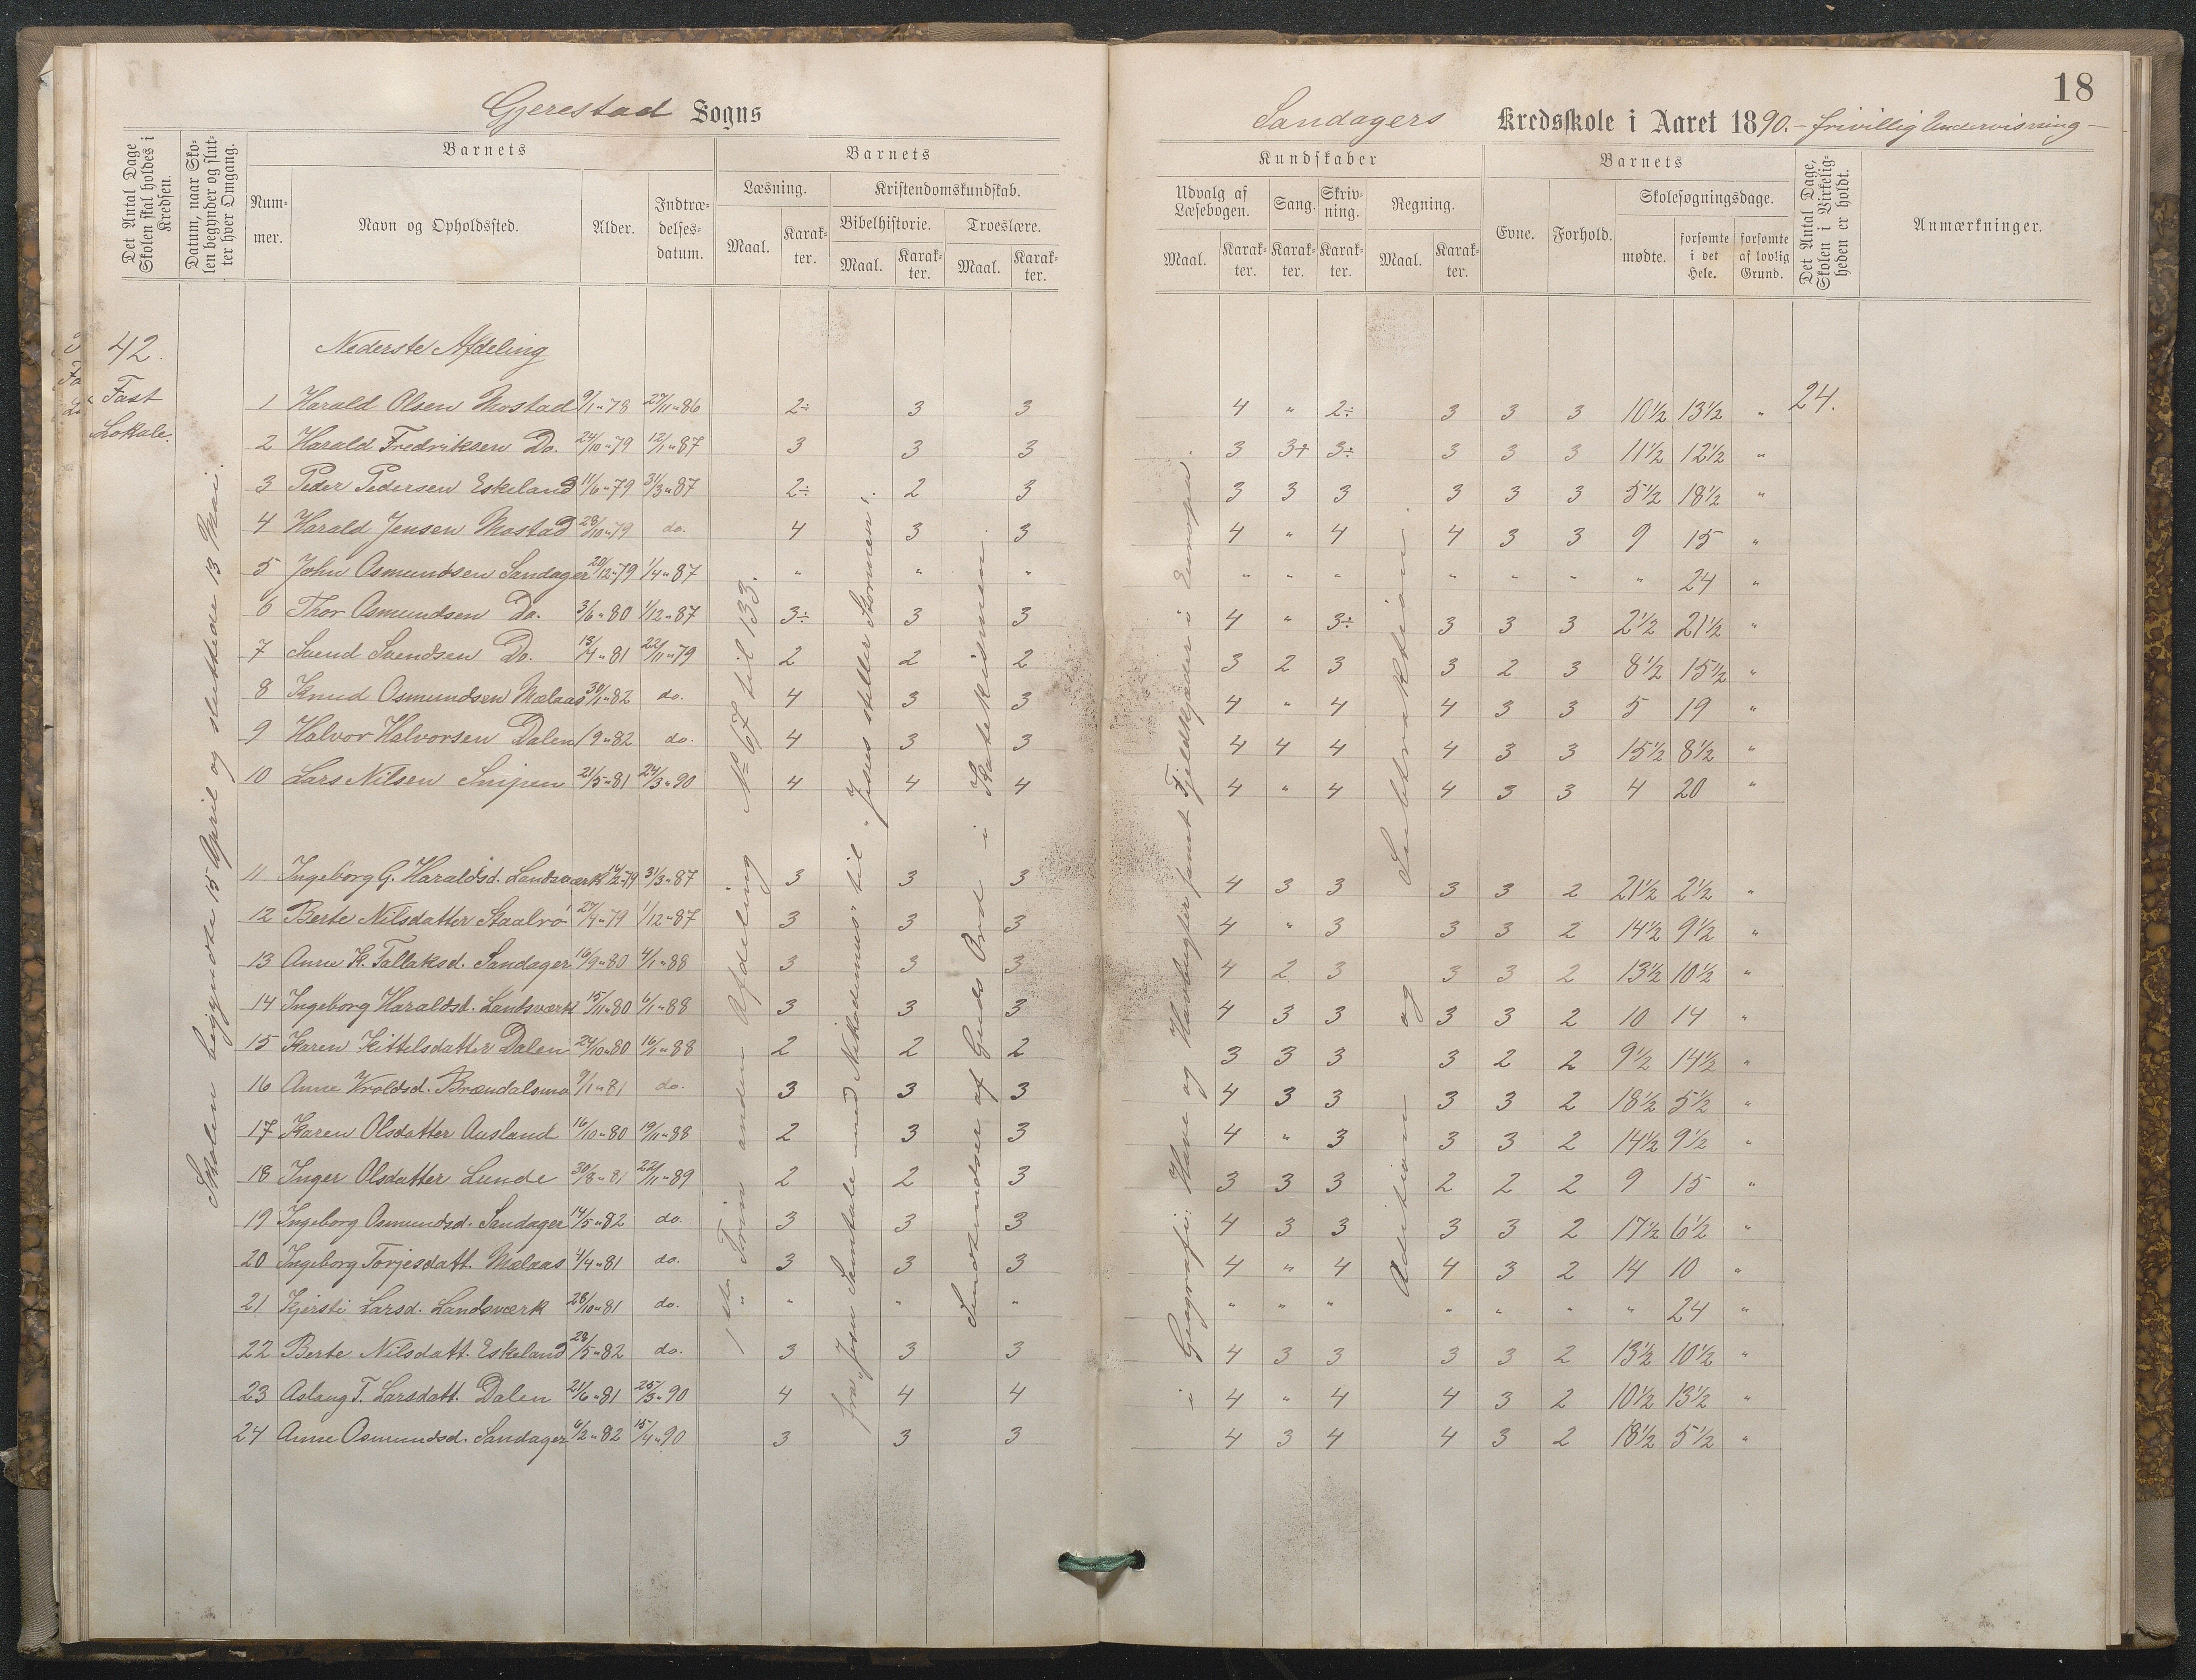 18
Gjerestad Sogns
Sandagers Kredsskole i Aaret 1890. – frivillig Undervisning –
Det Antal Dage Skolen skal holdes i Kredsen.
Datum, naar Skolen begynder og slutter hver Omgang.
Barnets
Nummer.
Navn og Opholdssted.
Alder.
Indtrædelsesdatum.
Barnets
Læsning.
Maal.
Karakter.
Kristendomskundskab.
Bibelhistorie.
Maal.
Karakter.
Troeslære.
Maal.
Karakter.
Kundskaber
Udvalg af Læsebogen.
Maal.
Karakter.
Sang.
Karakter.
Skrivning.
Karakter.
Regning.
Maal.
Karakter.
Barnets
Evne.
Forhold.
Skolesøgningsdage.
mødte.
forsømte i det Hele.
forsømte af lovlig Grund.
Det Antal Dage, Skolen i Virkeligheden er holdt.
Anmærkninger.
42.
Fast
Lokale.
Skolen begyndte 15 April og sluttede 13 Mai.
Nederste Afdeling
1ste Trin anden Afdeling No 67 til 133.
fra „Jesu Samtale med Nikodemus" til „Jesus stiller Stormen".
Sandsmidser af Guds Ord i Katekismen.
i Geografi: Have og Havbugter samt Fjeldkjæder i Europa.
Adition og Subtraktion.
24.
1 Harald Olsen Mostad 9/1 „ 78 27/11 „ 86 2÷ 3 3 4 „ 2÷ 3 3 3 10½ 13½ „
2 Harald Fredriksen Do. 24/10 „ 79 12/1 „ 87 3 3 3 3 3+ 3÷ 3 3 3 11½ 12½ „
3 Peder Pedersen Eskeland 11/6 „ 79 31/3 „ 87 2÷ 2 3 3 3 3 3 3 3 5½ 18½ „
4 Harald Jensen Mostad 28/10 „ 79 do. 4 3 3 4 „ 4 4 3 3 9 15 „
5 John Osmundsen Sandager 20/12 „ 79 1/4 „ 87 „ „ „ „ „ „ „ „ „ „ 24 „
6 Thor Osmundsen Do. 3/6 „ 80 1/12 „ 87 3÷ 3 3 4 „ 3÷ 3 3 3 2½ 21½ „
7 Svend Svendsen Do. 13/4 „ 81 22/11 „ 79 2 2 2 3 2 3 3 2 3 8½ 15½ „
8 Knud Osmundsen Mælaas 30/1 „ 82 do. 4 3 3 4 „ 4 4 3 3 5 19 „
9 Halvor Halvorsen Dalen 1/9 „ 82 do. 4 3 3 4 4 4 4 3 3 15½ 8½ „
10 Lars Nilsen Snipen 21/5 „ 81 24/3 „ 90 4 4 4 4 „ 4 4 3 3 4 20 „
11 Ingeborg G. Haraldsd. Landsværk 16/2 „ 79 31/3 „ 87 3 3 3 4 3 3 3 3 2 21½ 2½ „
12 Berte Nilsdatter Staalro 27/4 „ 79 1/12 „ 87 3 3 3 4 „ 3 3 3 2 14½ 9½ „
13 Anne K. Tallaksd. Sandager 16/9 „ 80 4/1 „ 88 3 3 3 4 2 3 3 3 2 13½ 10½ „
14 Ingeborg Haraldsd. Landsværk 15/11 „ 80 6/1 „ 88 3 3 3 4 3 3 3 3 2 10 14 „
15 Karen Kittelsdatter Dalen 24/10 „ 80 16/1 „ 88 2 2 2 3 3 3 3 2 2 9½ 14½ „
16 Anne Vroldsd. Brændalsmo 9/1 „ 81 do. 3 3 3 4 3 3 3 3 2 18½ 5½ „
17 Karen Olsdatter Ausland 16/10 „ 80 19/11 „ 88 2 3 3 4 „ 3 3 3 2 14½ 9½ „
18 Inger Olsdatter Lunde 30/8 „ 81 22/11 „ 89 2 2 3 3 3 3 2 2 2 9 15 „
19 Ingeborg Osmundsd. Sandager 14/5 „ 82 do. 3 3 3 4 3 3 3 3 2 17½ 6½ „
20 Ingeborg Torjesdatt. Mælaas 4/4 „ 81 do. 3 3 3 4 „ 4 4 3 2 14 10 „
21 Kjersti Larsd. Landsværk 28/10 „ 81 do. „ „ „ „ „ „ „ „ „ „ 24 „
22 Berte Nilsdatt. Eskeland 28/5 „ 82 do. 3 3 3 4 3 3 3 3 2 13½ 10½ „
23 Aslaug T. Larsdatt. Dalen 21/6 „ 81 25/3 „ 90 4 4 4 4 „ 4 4 3 2 10½ 13½ „
24 Anne Osmundsd. Sandager 6/2 „ 82 15/4 „ 90 3 3 3 4 3 4 4 3 2 18½ 5½ „